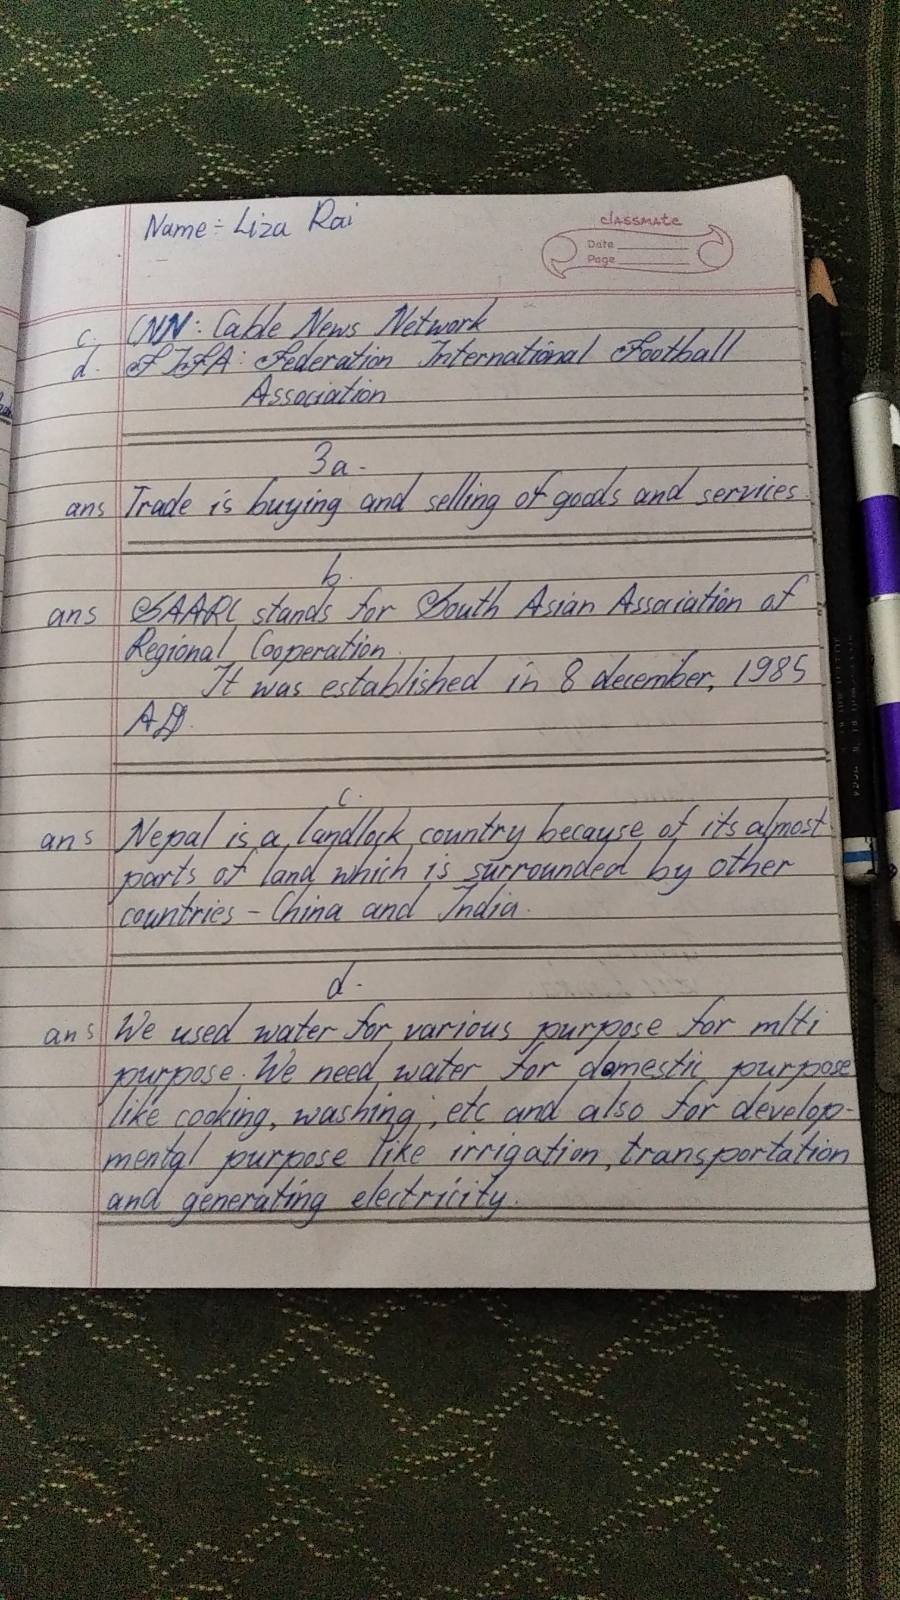 Name:- Liza Rai
classmate
Date
Page
c. CNN: Cable News Network
d. FIFA: Federation International Football
Association
3a.
ans Trade is buying and selling of goods and services
b.
ans SAARC stands for South Asian Association of
Regional Cooperation.
It was established in 8 december, 1985
AD.
c.
ans Nepal is a landlock country because of its almost
parts of land which is surrounded by other
countries - China and India.
d.
ans We used water for various purpose for mlti
purpose. We need water for domestic purpose
like cooking, washing, etc and also for develop-
mental purpose like irrigation, transportation
and generating electricity.